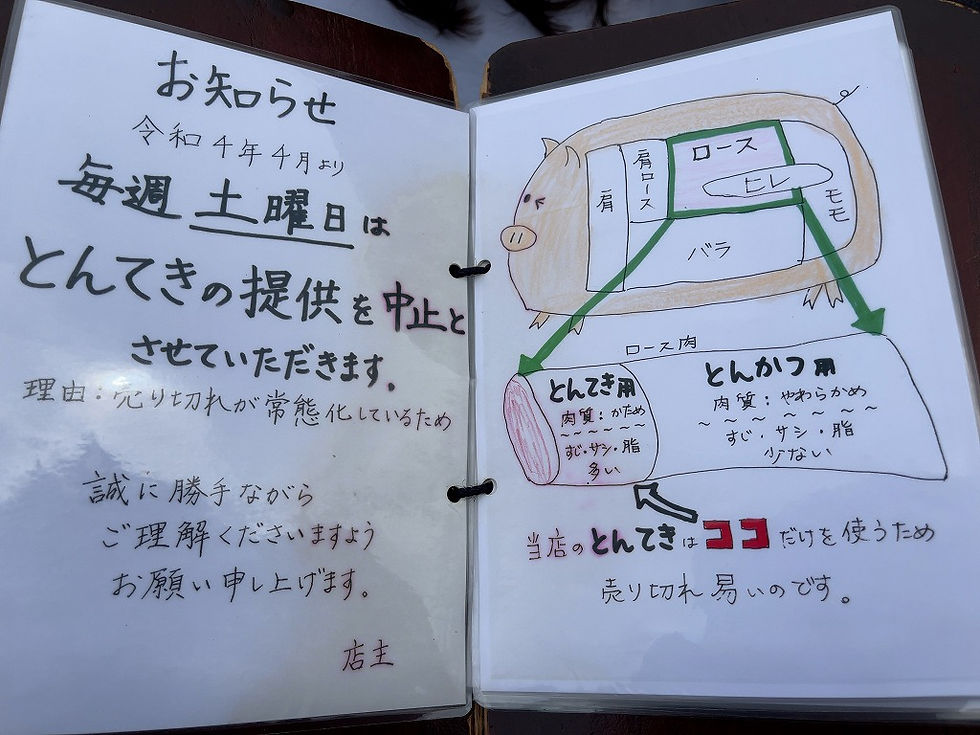 お知らせ
令和4年4月より
毎週土曜日は
とんてきの提供を中止と
させていただきます。
理由:売り切れが常態化しているため
誠に勝手ながら
ご理解くださいますよう
お願い申し上げます。
店主
肩
肩ロース
ロース
ヒレ
バラ
モモ
ロース肉
とんてき用
肉質:かため
すじ・サシ・脂
多い
とんかつ用
肉質:やわらかめ
すじ・サシ・脂
少ない
当店のとんてきはココだけを使うため
売り切れ易いのです。